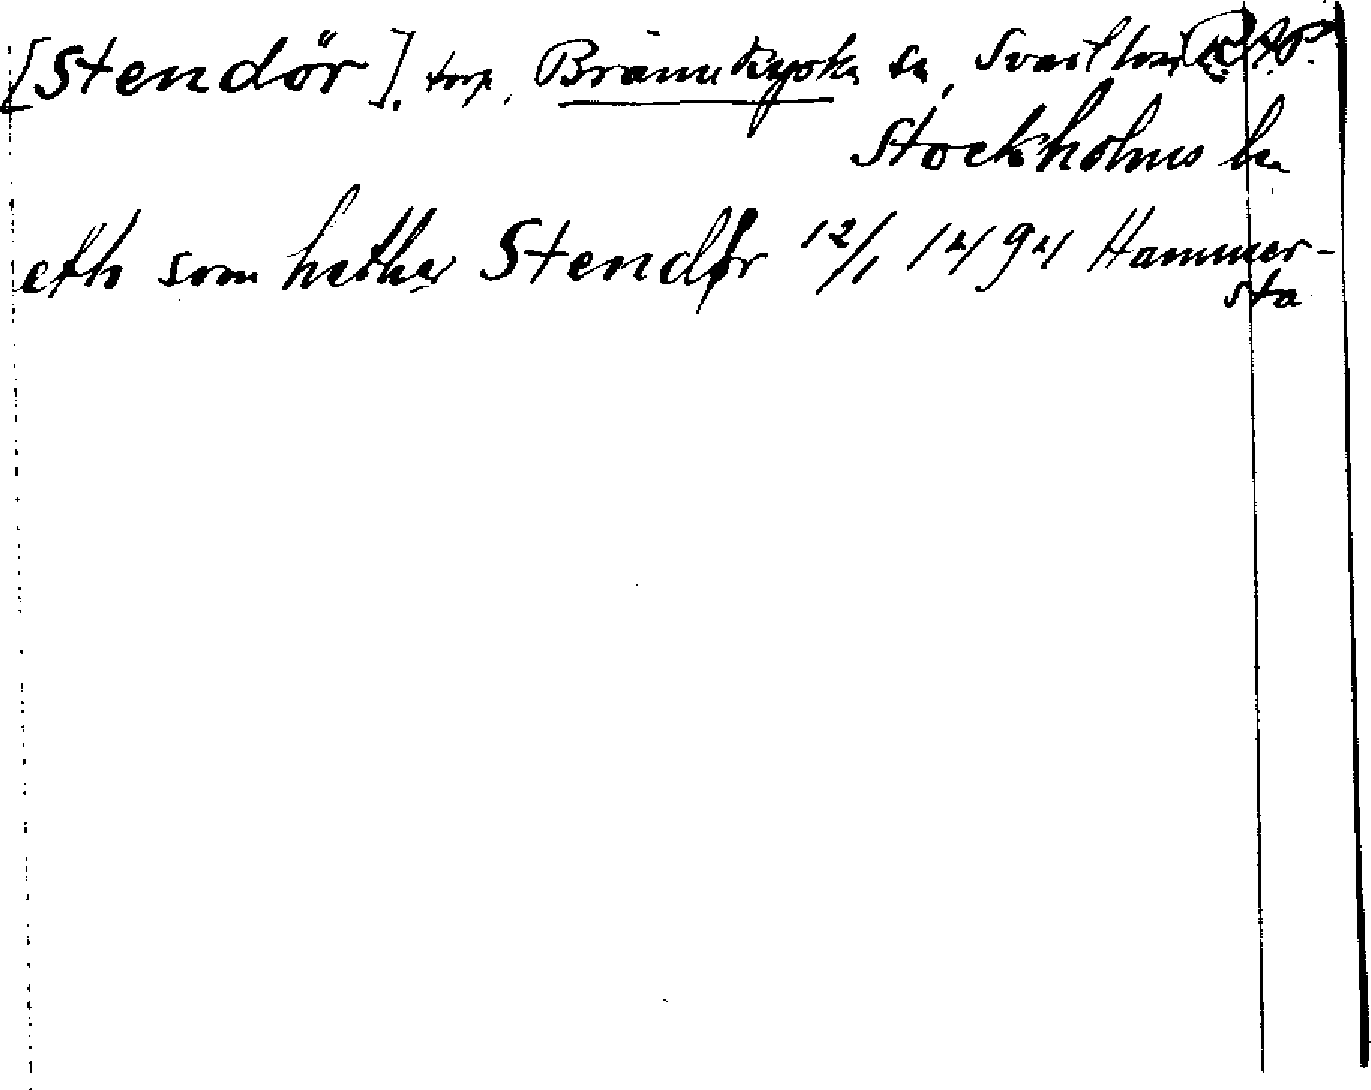 [Stendör]. torp, Brännkyrka sn, Svartlösa
Stockholms ln
eth som hether Stendør 12/1 1494 Hammer-
sta